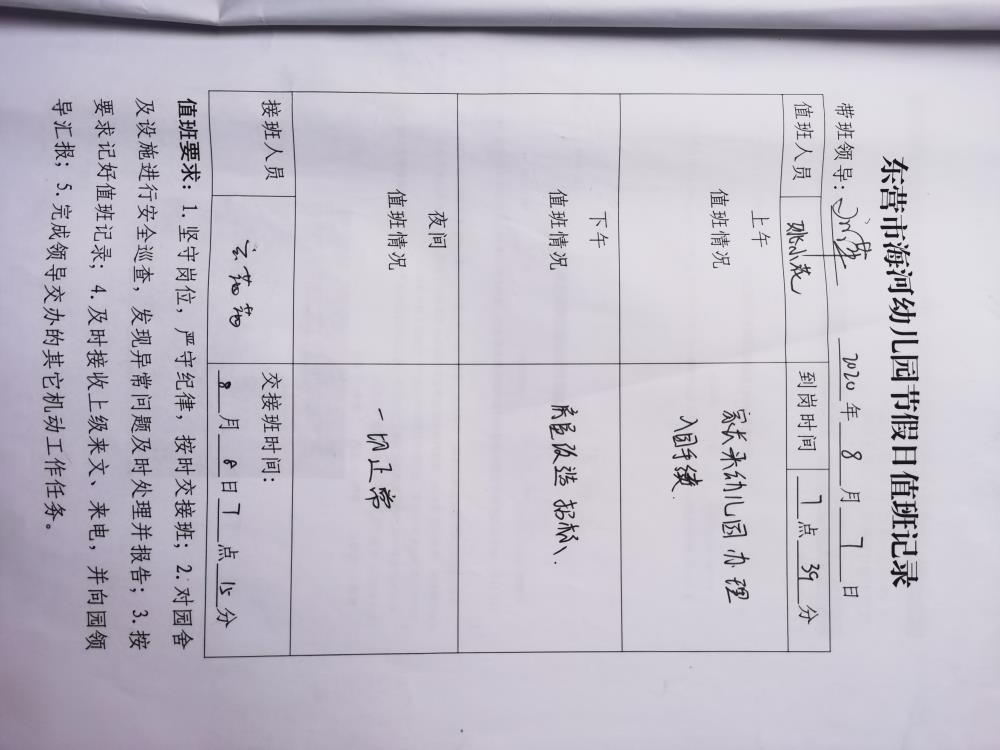 东营市海河幼儿园节假日值班记录
带班领导: 2020年8月7日
值班人员 张小花 到岗时间 7点39分
上午
值班情况
家长来幼儿园办理
入园手续
下午
值班情况
改造招标、
夜间
值班情况
一切正常
接班人员
交接班时间:
8月8日7点15分
值班要求:1.坚守岗位,严守纪律,按时交接班;2.对园舍
及设施进行安全巡查,发现异常问题及时处理并报告;3.按
要求记好值班记录;4.及时接收上级来文、来电,并向园领
导汇报;5.完成领导交办的其它机动工作任务。